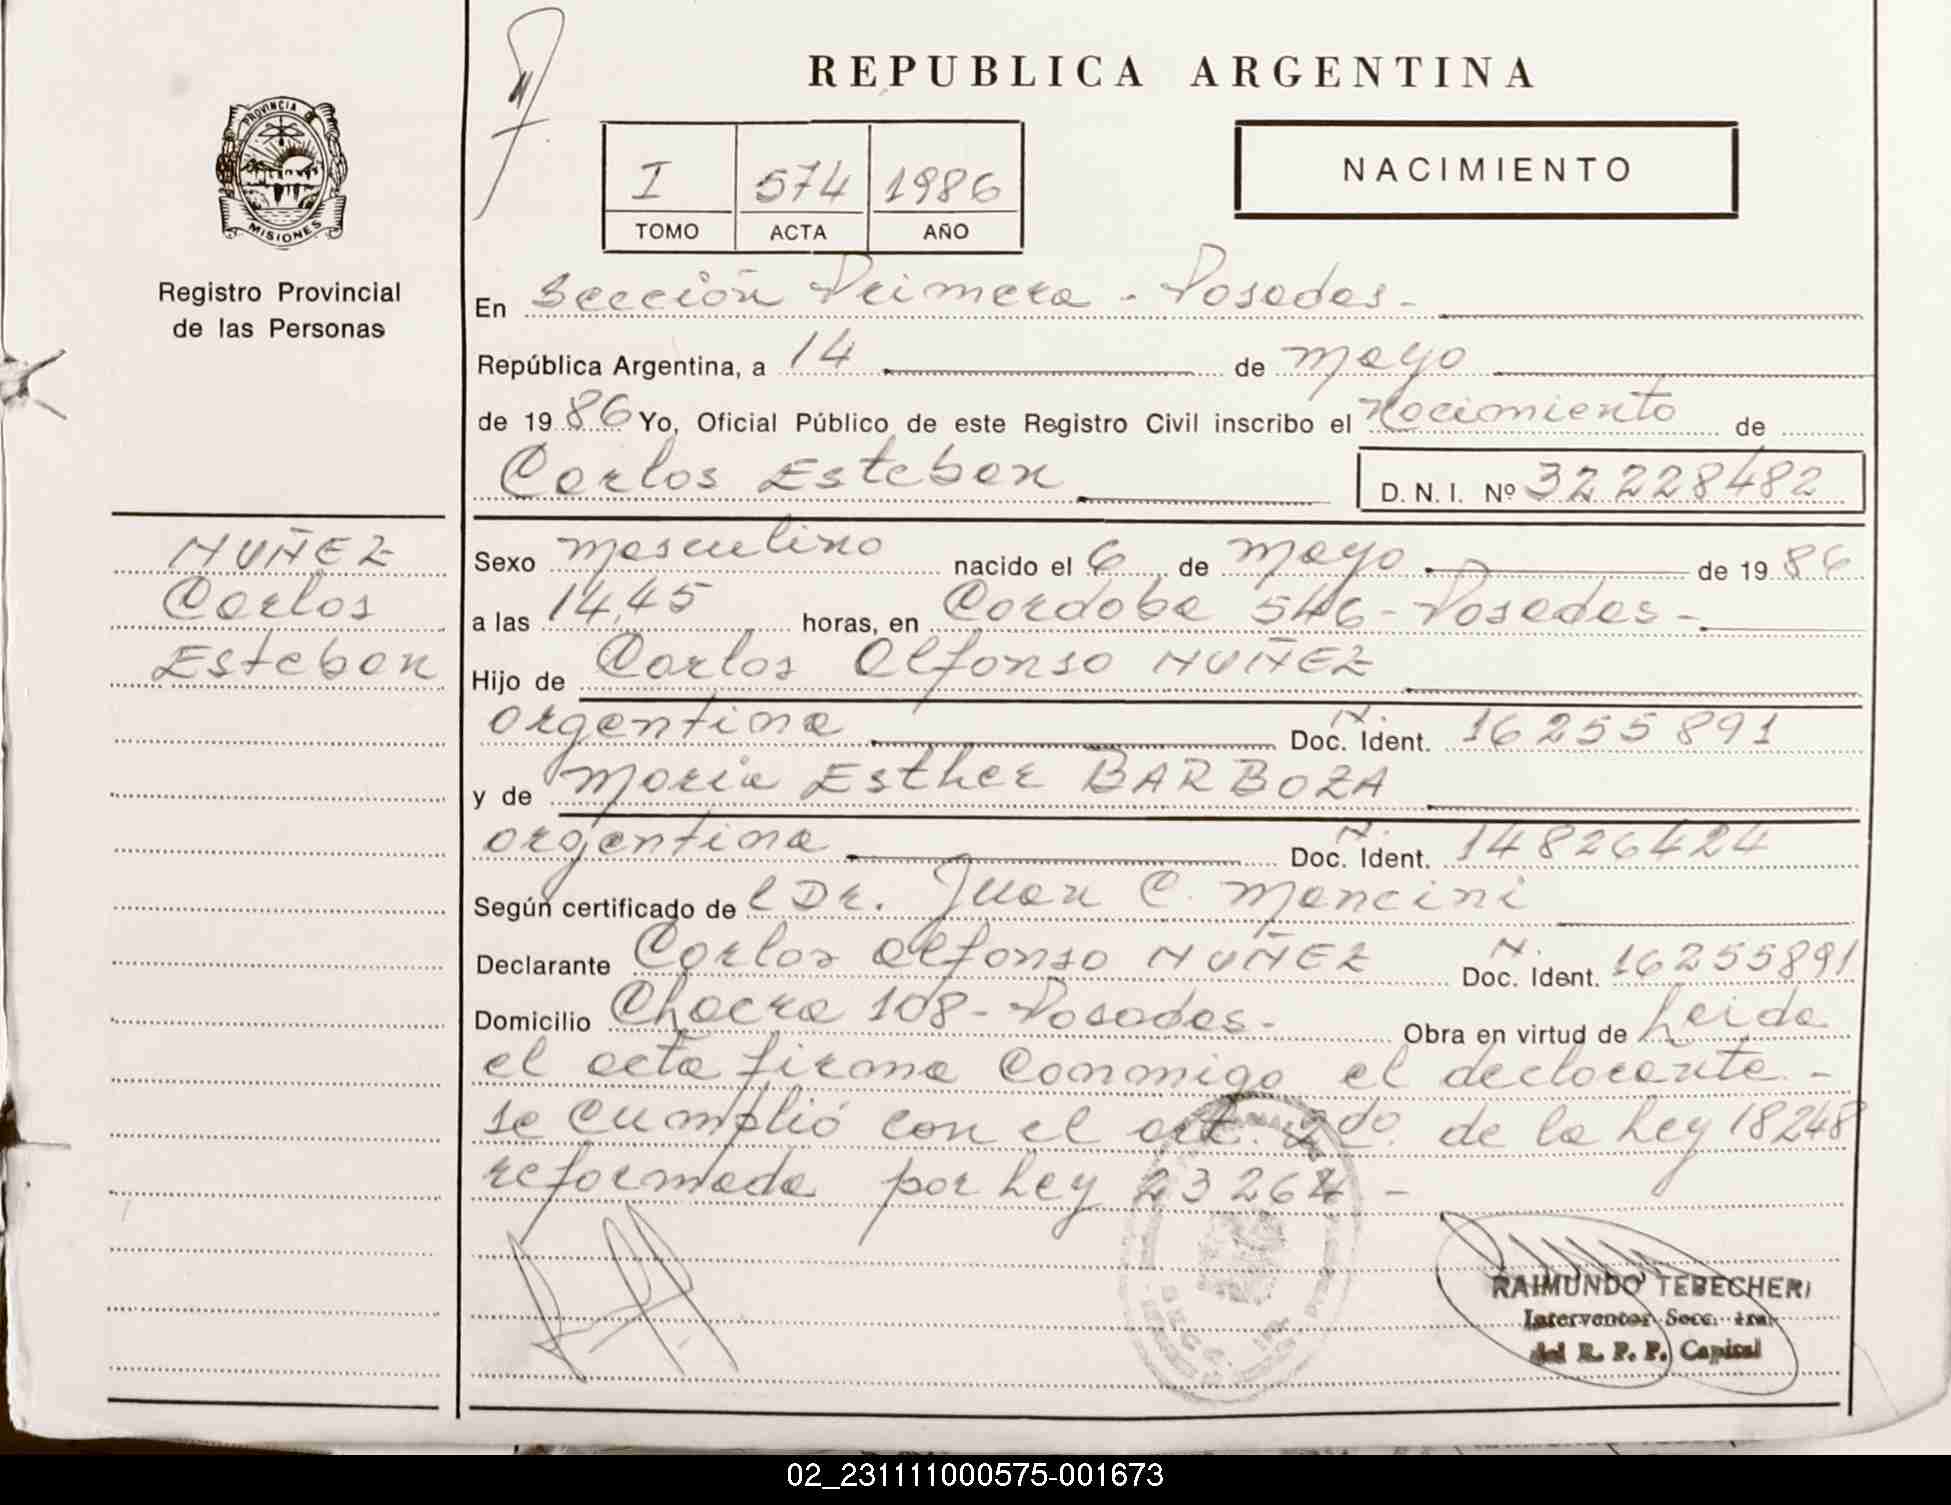 REPUBLICA ARGENTINA
PROVINCIA DE
MISIONES
Registro Provincial
de las Personas
I 574 1986
TOMO ACTA AÑO
NACIMIENTO
En Sección Primera - Posadas -
República Argentina, a 14 de mayo
de 19 86 Yo, Oficial Público de este Registro Civil inscribo el Nacimiento de
Carlos Esteban D. N. I. Nº 32 228482
NUÑEZ
Carlos
Esteban
Sexo masculino nacido el 6 de mayo de 19 86
a las 14,45 horas, en Cordoba 546 - Posadas -
Hijo de Carlos Alfonso NUÑEZ
argentina N. Doc. Ident. 16255891
y de Maria Esther BARBOZA
argentina N. Doc. Ident. 14826424
Según certificado de l Dr. Juan C. Mancini
Declarante Carlos Alfonso NUÑEZ N. Doc. Ident. 16255891
Domicilio Chacra 108 - Posadas - Obra en virtud de Leida
el acta firma conmigo el declarante -
se cumplió con el art. 2do. de la Ley 18248
reformada por Ley 23264 -
RAIMUNDO TEBECHERI
Interventor Secc. 1ra.
del R. P. P. Capital
02_231111000575-001673